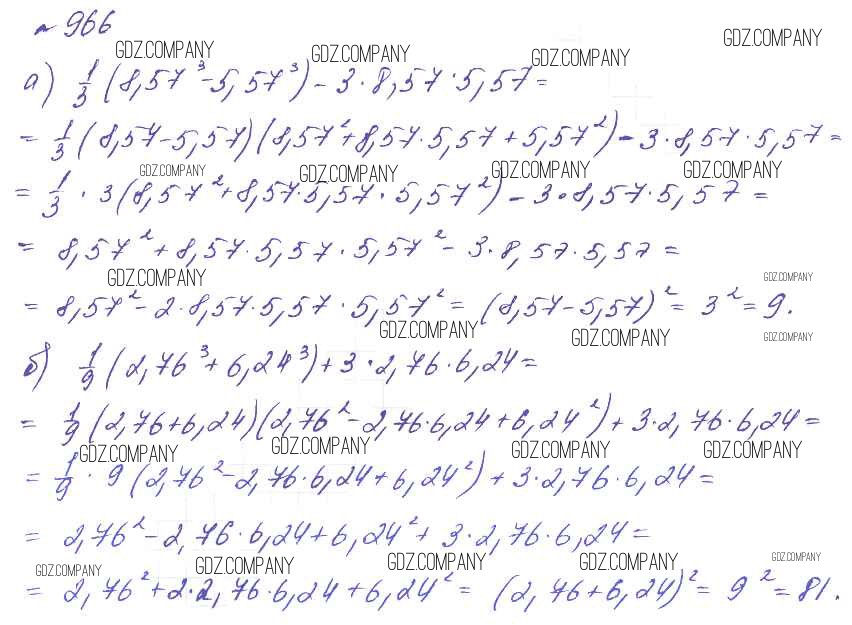 № 966
GDZ.COMPANY GDZ.COMPANY GDZ.COMPANY GDZ.COMPANY
а) 1/3 (8,57³ - 5,57³) - 3 · 8,57 · 5,57 =
= 1/3 (8,57 - 5,57)(8,57² + 8,57 · 5,57 + 5,57²) - 3 · 8,57 · 5,57 =
GDZ.COMPANY GDZ.COMPANY GDZ.COMPANY GDZ.COMPANY
= 1/3 · 3 (8,57² + 8,57 · 5,57 · 5,57²) - 3 · 8,57 · 5,57 =
= 8,57² + 8,57 · 5,57 · 5,57² - 3 · 8,57 · 5,57 =
GDZ.COMPANY GDZ.COMPANY
= 8,57² - 2 · 8,57 · 5,57 · 5,57² = (8,57 - 5,57)² = 3² = 9.
GDZ.COMPANY GDZ.COMPANY GDZ.COMPANY
б) 1/9 (2,76³ + 6,24³) + 3 · 2,76 · 6,24 =
= 1/9 (2,76 + 6,24)(2,76² - 2,76 · 6,24 + 6,24²) + 3 · 2,76 · 6,24 =
GDZ.COMPANY GDZ.COMPANY GDZ.COMPANY GDZ.COMPANY
= 1/9 · 9 (2,76² - 2,76 · 6,24 + 6,24²) + 3 · 2,76 · 6,24 =
= 2,76² - 2,76 · 6,24 + 6,24² + 3 · 2,76 · 6,24 =
GDZ.COMPANY GDZ.COMPANY GDZ.COMPANY GDZ.COMPANY GDZ.COMPANY
= 2,76² + 2 · 2,76 · 6,24 + 6,24² = (2,76 + 6,24)² = 9² = 81.